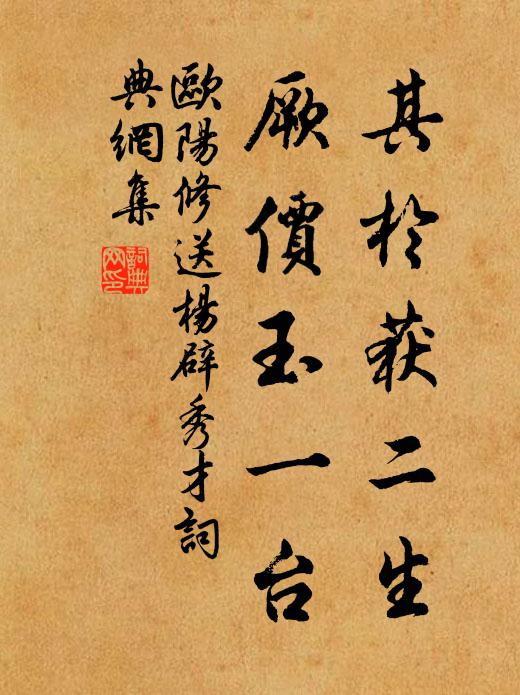 其於获二生
厥價玉一台
歐陽修送楊辟秀才詞
典網集
詞典
网印